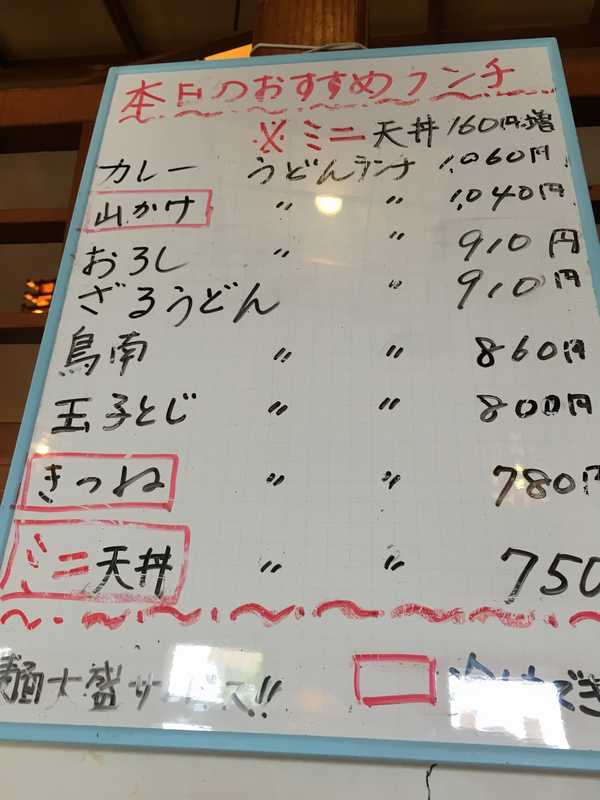 本日のおすすめランチ
※ミニ天丼160円増
カレー うどんランチ 1,060円
山かけ 〃 〃 1,040円
おろし 〃 〃 910円
ざるうどん 〃 910円
鳥南 〃 〃 860円
玉子とじ 〃 〃 800円
きつね 〃 〃 780円
ミニ天丼 〃 〃 750
麺大盛サービス!!